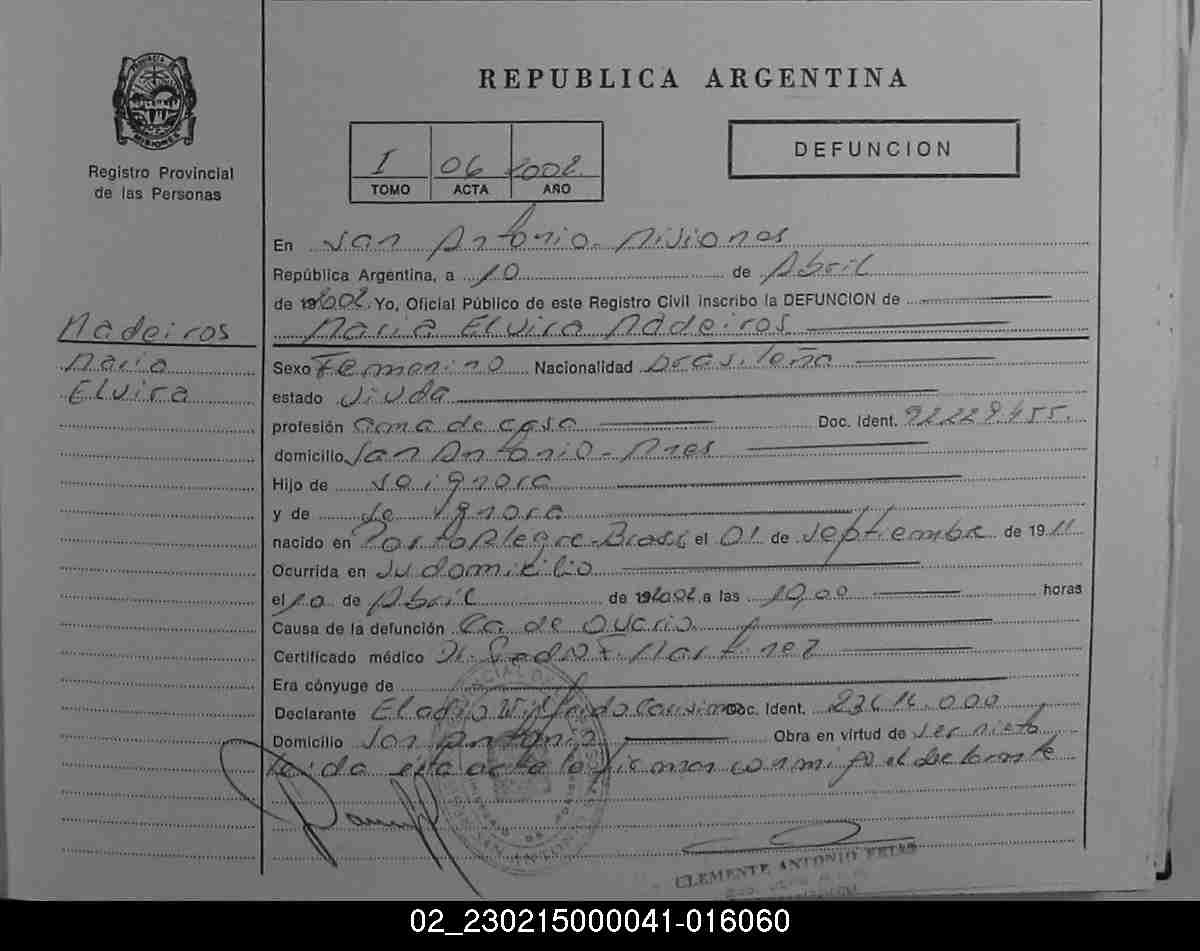 REPUBLICA ARGENTINA
PROVINCIA DE
MISIONES
Registro Provincial
de las Personas
I 06 2002
TOMO ACTA AÑO
DEFUNCION
En San Antonio - Misiones
República Argentina, a 10 de Abril
de 2002. Yo, Oficial Público de este Registro Civil inscribo la DEFUNCION de
Madeiros
Maria Elvira Madeiros
Maria
Elvira
Sexo Femenino Nacionalidad Brasileña
estado Viuda
profesión ama de casa Doc. Ident. 92229.455.
domicilio San Antonio - Mnes
Hijo de se ignora
y de se ignora
nacido en Porto Alegre - Brasil el 01 de septiembre de 1911
Ocurrida en su domicilio
el 10 de Abril de 2002 a las 10,00 horas
Causa de la defunción Ca de Ovario
Certificado médico Dr. Pedro F. Martinez
Era cónyuge de
Declarante Eladio Wilfrido Doc. Ident. 23614.000
Domicilio San Antonio Obra en virtud de ser nieto
Leida esta acta la firman conmigo el declarante
CLEMENTE ANTONIO FRIAS
02_230215000041-016060